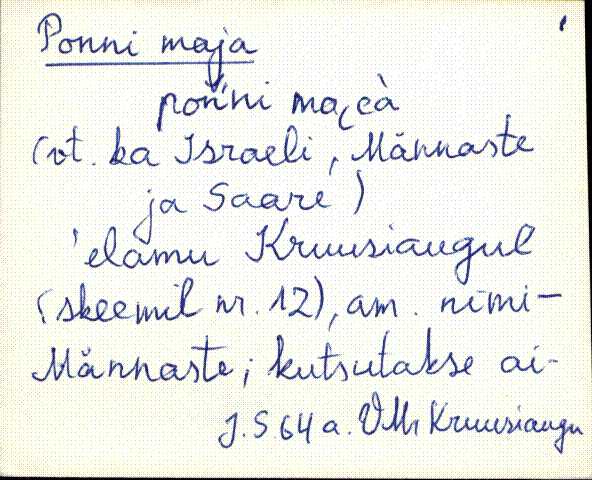 Ponni maja
ponni
(vt. ka Israeli, Männaste
ja Saare)
'elamu Kruusiaugul
(skeemil nr. 12), am. nimi-
Männaste; kutsutakse ai-
J.S. 64 a. VMr Kruusiaugu